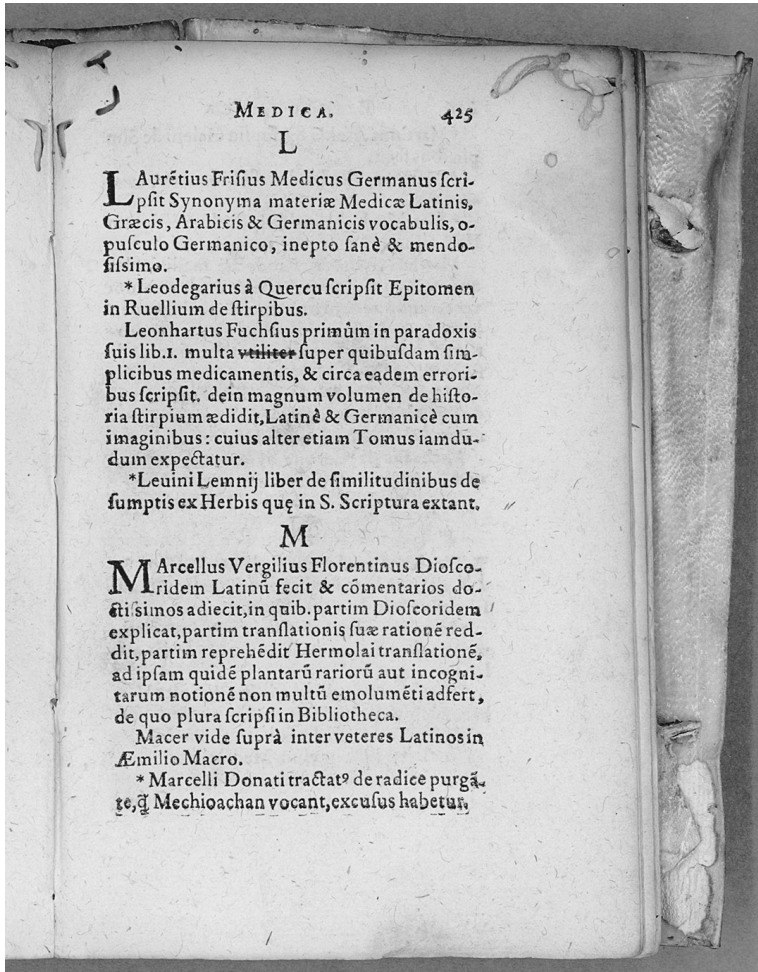 MEDICA. 425
L
LAurẽtius Frisius Medicus Germanus ſcri-
pſit Synonyma materiæ Medicæ Latinis,
Græcis, Arabicis & Germanicis vocabulis, o-
puſculo Germanico, inepto ſanè & mendo-
ſiſsimo.
*Leodegarius à Quercu ſcripſit Epitomen
in Ruellium de ſtirpibus.
Leonhartus Fuchſius primùm in paradoxis
ſuis lib.1. multa vtiliter ſuper quibuſdam ſim-
plicibus medicamentis, & circa eadem errori-
bus ſcripſit. dein magnum volumen de hiſto-
ria ſtirpium ædidit, Latinè & Germanicè cum
imaginibus: cuius alter etiam Tomus iamdu-
dum expectatur.
*Leuini Lemnij liber de ſimilitudinibus de
ſumptis ex Herbis quę in S. Scriptura extant.
M
MArcellus Vergilius Florentinus Dioſco-
ridem Latinũ fecit & cõmentarios do-
ctiſsimos adiecit, in quib. partim Dioſcoridem
explicat, partim translationis ſuæ rationẽ red-
dit, partim reprehẽdit Hermolai translationẽ,
ad ipſam quidẽ plantarũ rariorũ aut incogni-
tarum notionẽ non multũ emolumẽti adfert,
de quo plura ſcripſi in Bibliotheca.
Macer vide ſuprà inter veteres Latinos in
Æmilio Macro.
*Marcelli Donati tractatꝰ de radice purgã-
te, ꝗ̃ Mechioachan vocant, excuſus habetur.